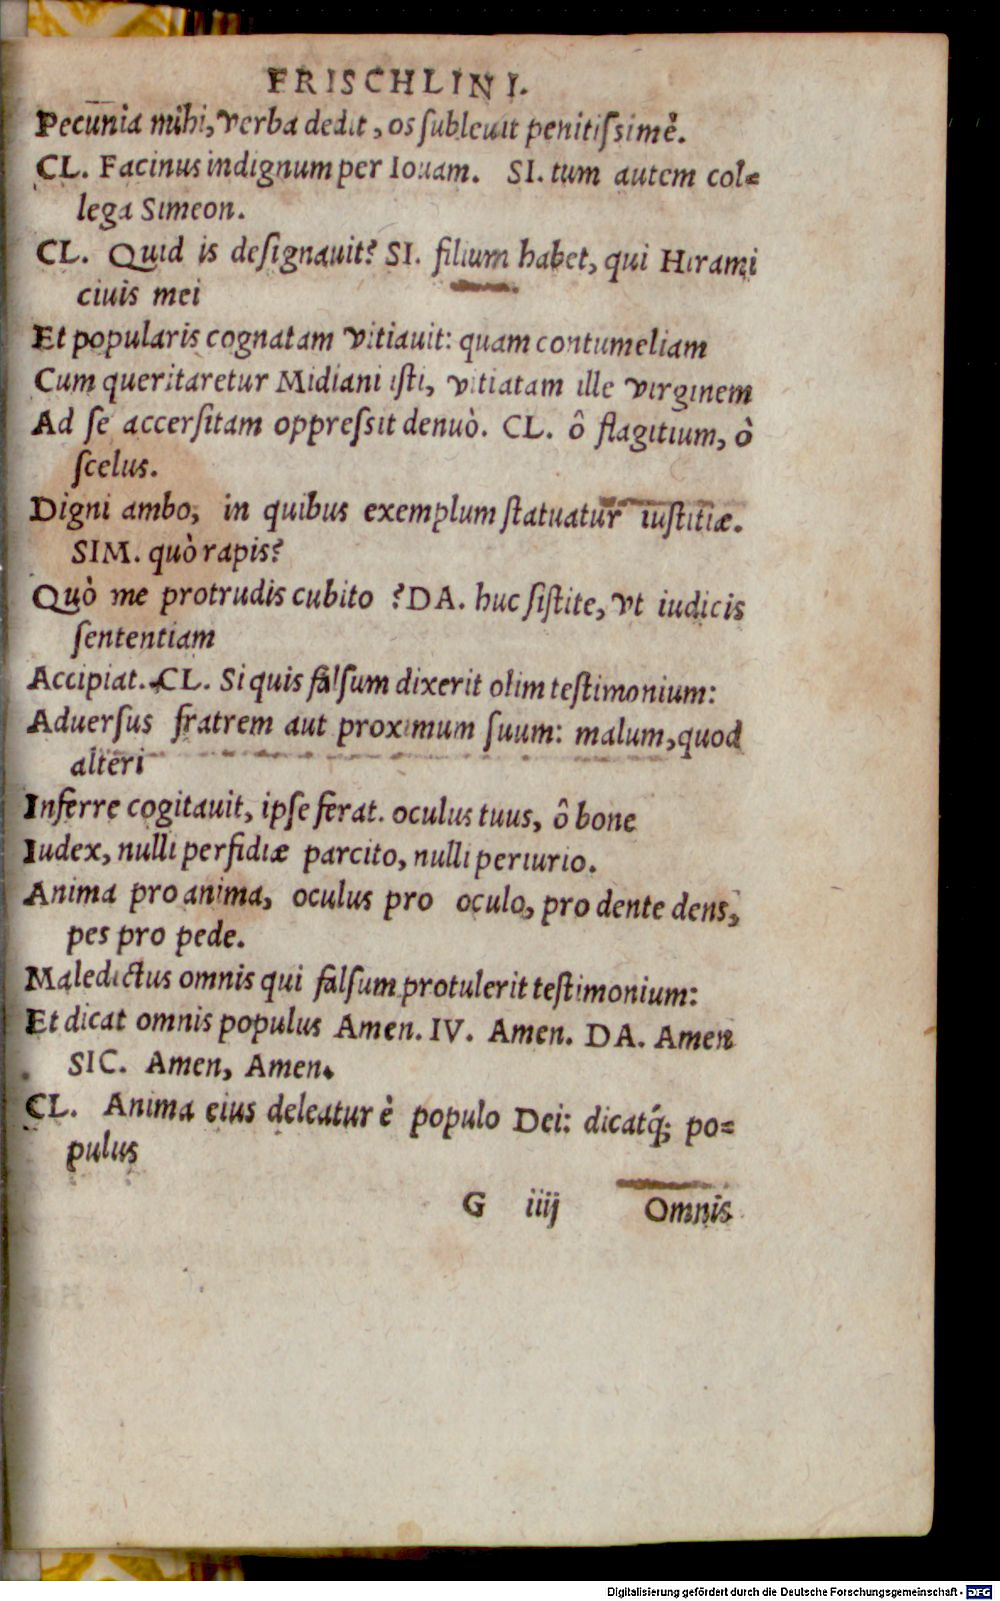 FRISCHLINI.
Pecunia mihi, verba dedit, os subleuit penitissimè.
CL. Facinus indignum per Iouam. SI. tum autem col=
lega Simeon.
CL. Quid is designauit? SI. filium habet, qui Hirami
ciuis mei
Et popularis cognatam vitiauit: quam contumeliam
Cum queritaretur Midiani isti, vitiatam ille virginem
Ad se accersitam oppressit denuò. CL. ô flagitium, ò
scelus.
Digni ambo, in quibus exemplum statuatur iustitiæ.
SIM. quò rapis?
Quò me protrudis cubito ? DA. huc sistite, vt iudicis
sententiam
Accipiat. CL. Si quis falsum dixerit olim testimonium:
Aduersus fratrem aut proximum suum: malum, quod
alteri
Inferre cogitauit, ipse ferat. oculus tuus, ô bone
Iudex, nulli perfidiæ parcito, nulli periurio.
Anima pro anima, oculus pro oculo, pro dente dens,
pes pro pede.
Maledictus omnis qui falsum protulerit testimonium:
Et dicat omnis populus Amen. IV. Amen. DA. Amen
SIC. Amen, Amen.
CL. Anima eius deleatur è populo Dei: dicatq́; po=
pulus
G iiij Omnis
Digitalisierung gefördert durch die Deutsche Forschungsgemeinschaft - DFG